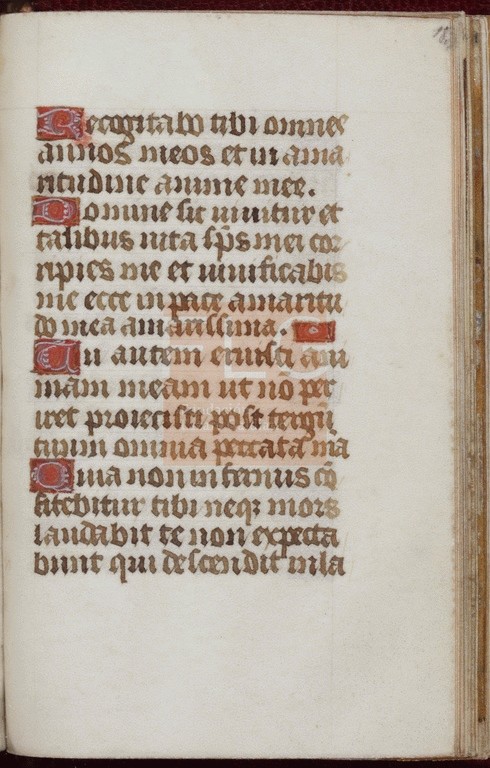 Recogitabo tibi omnes
annos meos et in ama
ritudine anime mee.
Domine sic uiuitur et
talibus uita sp̄s mei cor
ripies me et uiuificabis
me ecce in pace amaritu
do mea amarissima.
Tu autem eruisti ani
mam meam ut nō per
iret proiecisti post tergū
tuum omnia peccata ma
Quia non infernus cō
fitebitur tibi neqꝫ mors
laudabit te non expecta
bunt qui descendit in la